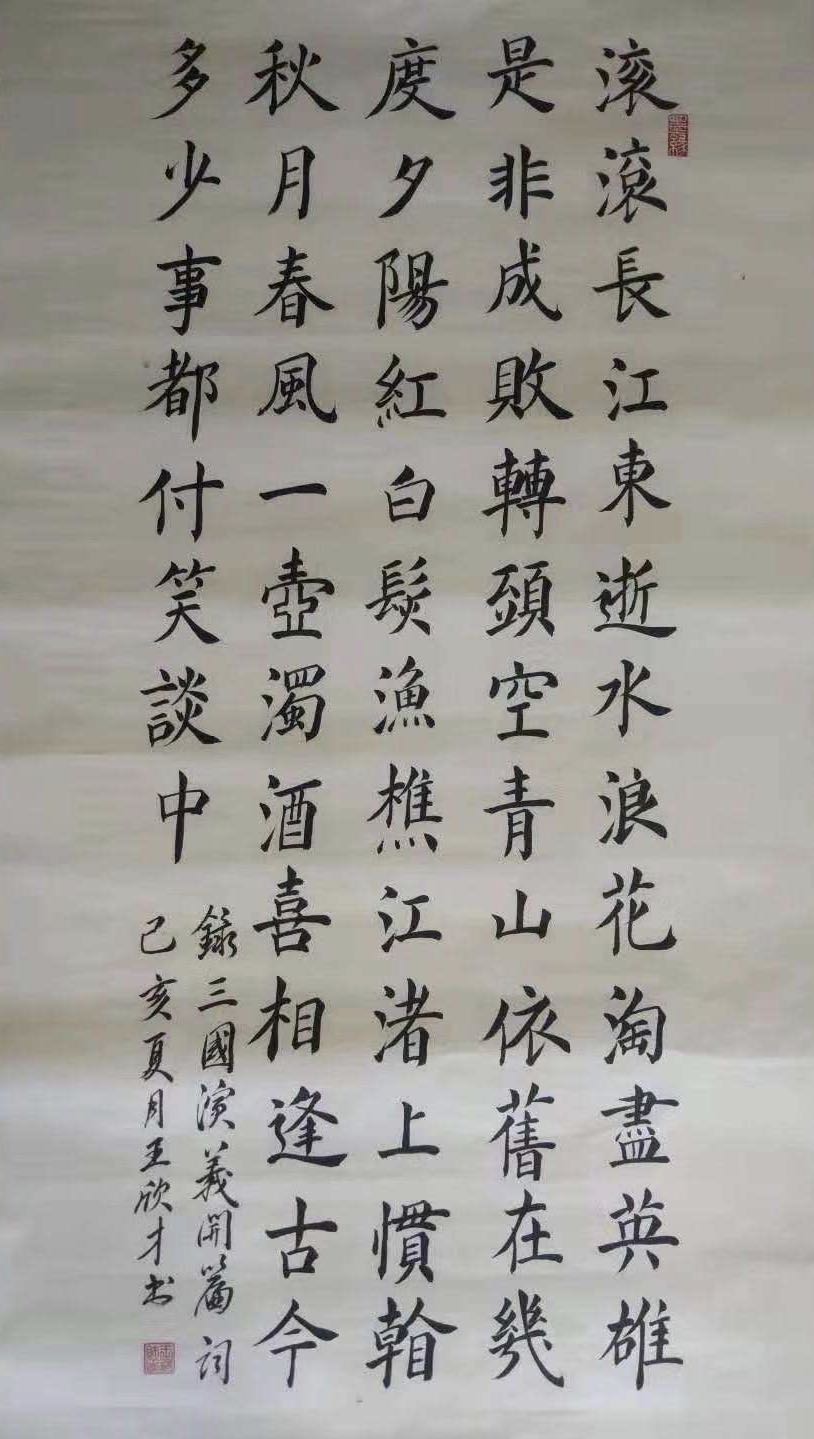 滚滾長江東逝水浪花淘盡英雄
是非成敗轉頭空青山依舊在幾
度夕陽紅白髮漁樵江渚上慣看
秋月春風一壺濁酒喜相逢古今
多少事都付笑談中
録三國演義開篇詞
己亥夏月王欣才书